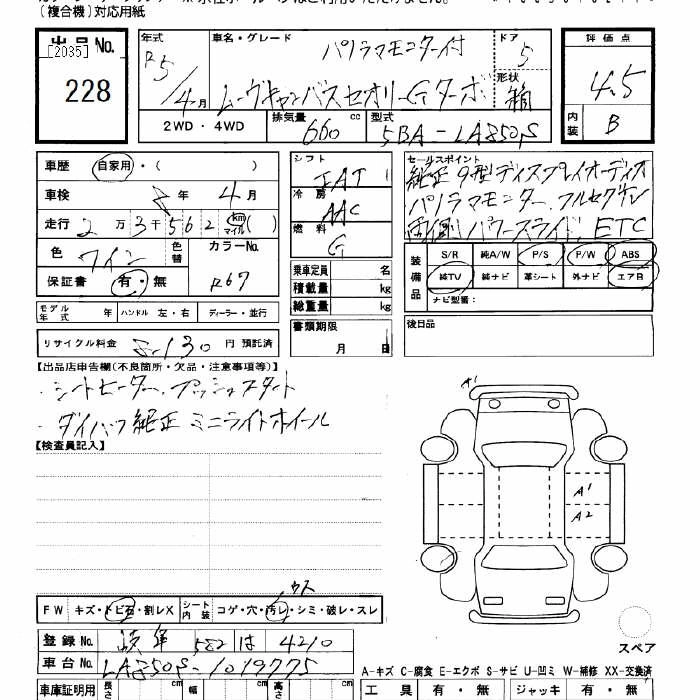 (複合機)対応用紙
出品No.
[2035]
228
年式
R5/4月
車名・グレード
パノラマモニター付
ムーヴキャンバスセオリーGターボ
ドア
5
形状
箱
評価点
4.5
内装
B
2WD・4WD
排気量 660 cc
型式 5BA-LA850S
車歴 自家用・( )
車検 年 4月
走行 2万3千562 km マイル ( )
色 ワイン
色替
カラーNo.
R67
保証書 有・無
モデル年式 年 ハンドル 左・右 ディーラー・並行
リサイクル料金 円 預託済
シフト IAT
冷房 AAC
燃料 G
乗車定員 名
積載量 kg
総重量 kg
書類期限
月 日
セールスポイント
純正9型ディスプレイオーディオ
パノラマモニター、フルセグTV
両側パワースライド、ETC
装備品
S/R 純A/W P/S P/W ABS
純TV 純ナビ 革シート 外ナビ エアB
ナビ型番:
後日品
【出品店申告欄(不良箇所・欠品・注意事項等)】
・シートヒーター、プッシュスタート
・ダイハツ純正ミニライトホイール
【検査員記入】
A1
A1
A2
ウス
FW キズ・トビ石・割レX シート内装 コゲ・穴・汚レ・シミ・破レ・スレ
登録No. 582 は 4210
車台No. LA850S-1019775
スペア
A-キズ C-腐食 E-エクボ S-サビ U-凹ミ W-補修 XX-交換済
車庫証明用 長さ cm 幅 cm 高さ cm
工具 有・無 ジャッキ 有・無